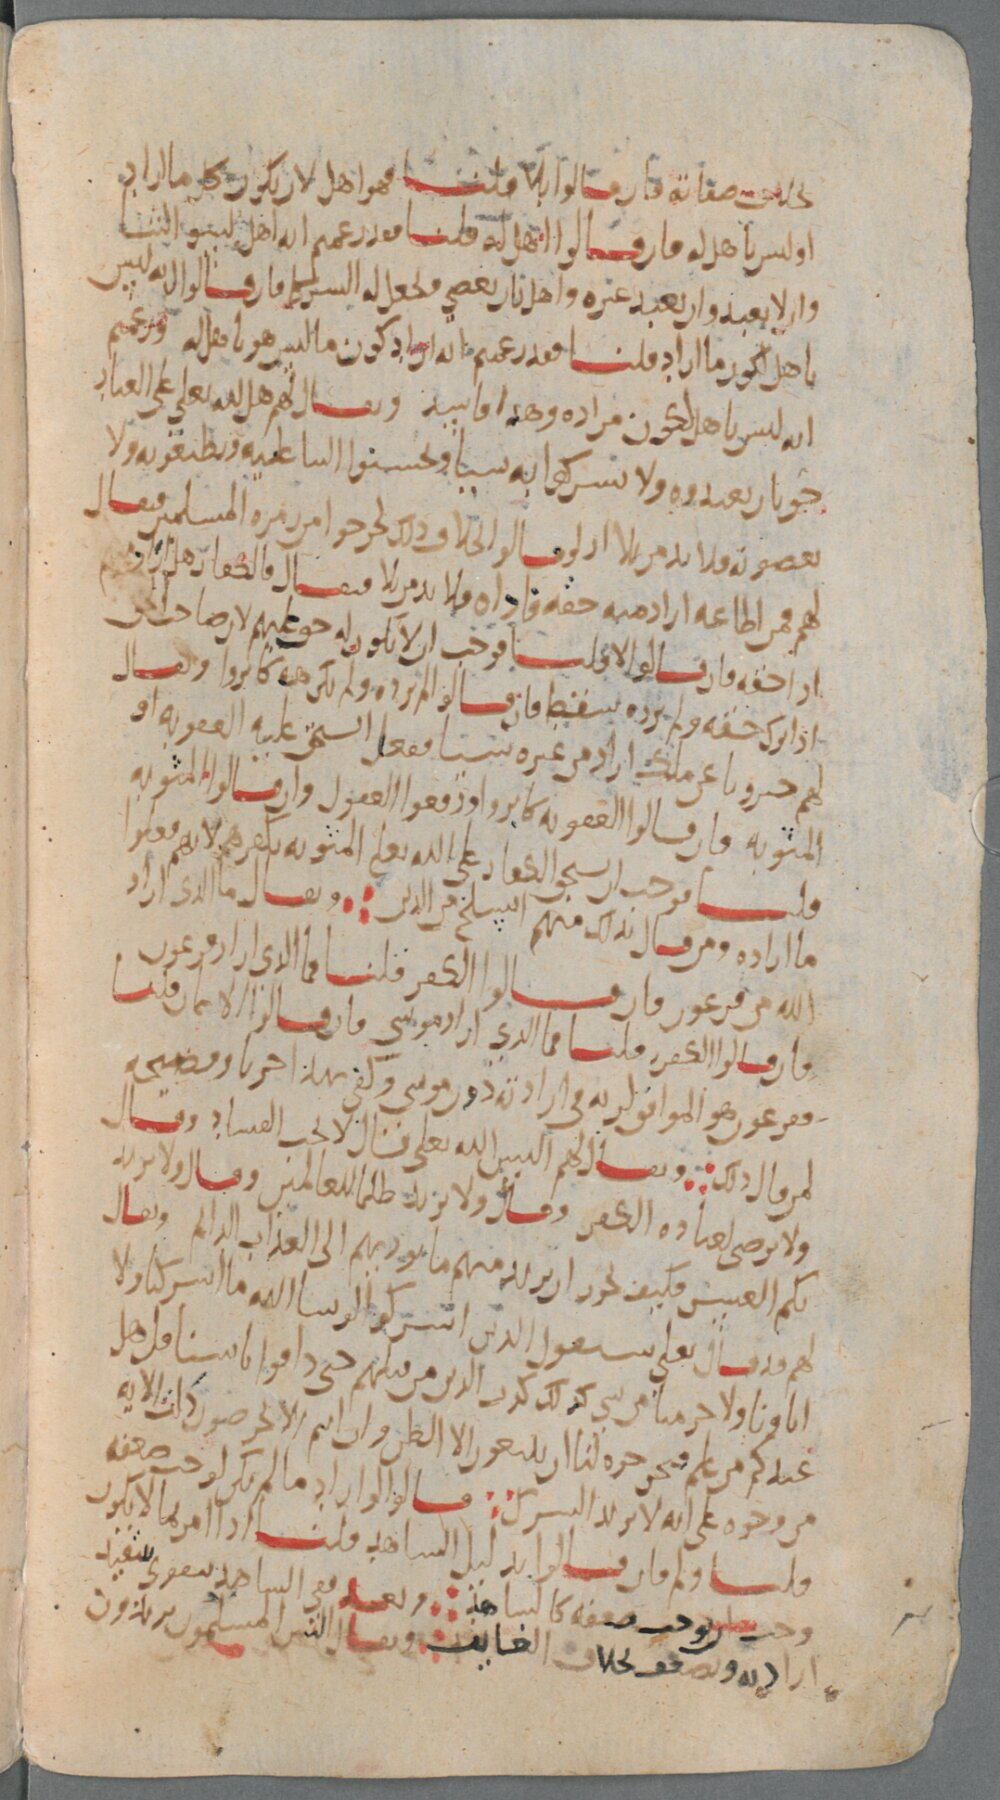 بخلاف صفاته فان قالوا بلا قلنا فهو اهل لان يكون كل ما اراد
او ليس باهل له فان قالوا اهل له قلنا فقد زعمتم انه اهل
وان لا يعبد وان يعبد غيره واهل بان يعصي ويجعل له الشريك فان قالوا انه ليس
باهل لكون ما اراد قلنا فقد زعمتم انه اراد كون ما ليس هو باهل له وزعمتم
انه ليس باهل لكون مراده وهذا ويقال لهم هل لله تعلى على العباد
حق بان يعبدوه ولا يشركوا به شيا ويحسنوا الثنا عليه ويطيعونه ولا
يعصونه ولا بد من بلا اذ لو قالوا بخلاف ذلك لخرجوا من زمرة المسلمين فيقال
لهم فمن اطاعه اراد منه حقه فاداه ولا بد من بلا فيقال فالكفار هل اراد منهم
اداحقه فان قالوا لا قلنا فوجب ان لا يكون له حق عليهم لان صاحب الحق
اذا ترك حقه ولم يرده سقط فان قالوا لم يرده ولم يكرهه كابروا ويقال
لهم خبرونا عن ملك اراد من غيره شيا ففعل استحق عليه العقوبة او
المثوبة فان قالوا العقوبة كابروا ودفعوا العقول وان قالوا المثوبة
قلنا فوجب ان يستحق الكفار على الله تعلى المثوبة بكفرهم لانهم فعلوا
ما اراده ومن قال بذلك منهم انسلخ من الدين ويقال ما الذي اراد
الله من فرعون فان قالوا الكفر قلنا فما الذي اراد فرعون
فان قالوا الكفر قلنا فما الذي اراد موسى فان قالوا الايمان قلنا
ففرعون هو الموافق لربه في ارادته دون موسى وكفى بهذا خزيا وفضيحة
لمن قال ذلك ويقال لهم اليس الله تعلى قال لا يحب الفساد وقال
ولا يرضى لعباده الكفر وقال ولا يريد ظلما للعالمين وقال ولا يريد
بكم العسر فكيف يجوز ان يريد منهم ما يوديهم الى العذاب الدائم ويقال
لهم قد قال تعلى سيقول الذين اشركوا لو شا الله ما اشركنا ولا
اباونا ولا حرمنا من شي كذلك كذب الذين من قبلهم حتى ذاقوا باسنا قل هل
عندكم من علم فتخرجوه لنا ان يتبعون الا الظن وان انتم الا تخرصون ذلك الاية
من وجوه على انه لا يريد الشرك قالوا لو اراد ما لم يكن لوجب ضعفه
قلنا ولم فان قالوا بدليل الشاهد قلنا اذا امر بما لا يكون
وجب ضعفه كالشاهد وبعد ففي الشاهد يقوى بتنفيذ
ارادته ويضعف بخلاف الغايب ويقال اليس المسلمون يريدون